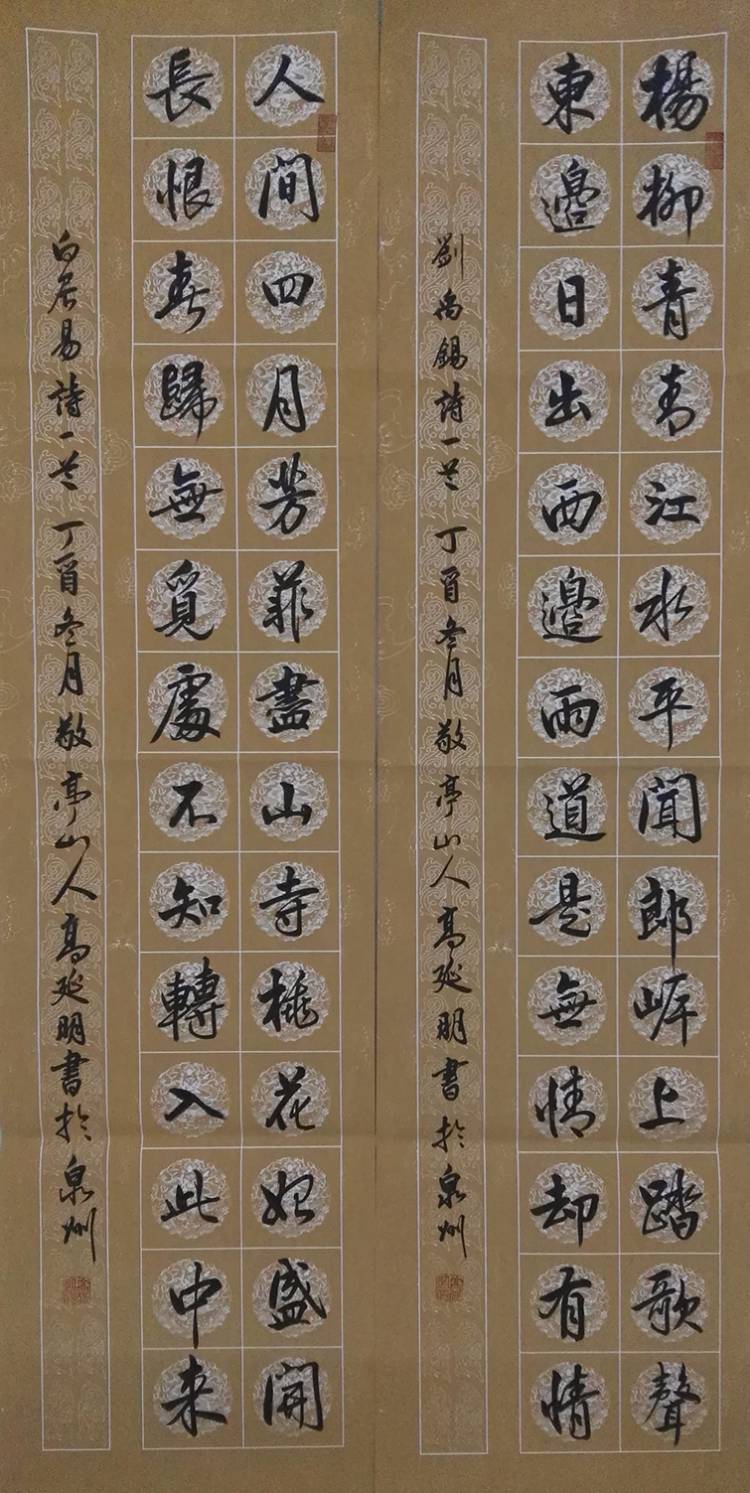 楊柳青青江水平聞郎岸上踏歌聲
東邊日出西邊雨道是無情却有情
劉禹錫詩一首 丁酉冬月 敬亭山人高延明書於泉州
人間四月芳菲盡山寺桃花始盛開
長恨春歸無覓處不知轉入此中来
白居易詩一首 丁酉冬月 敬亭山人高延明書於泉州